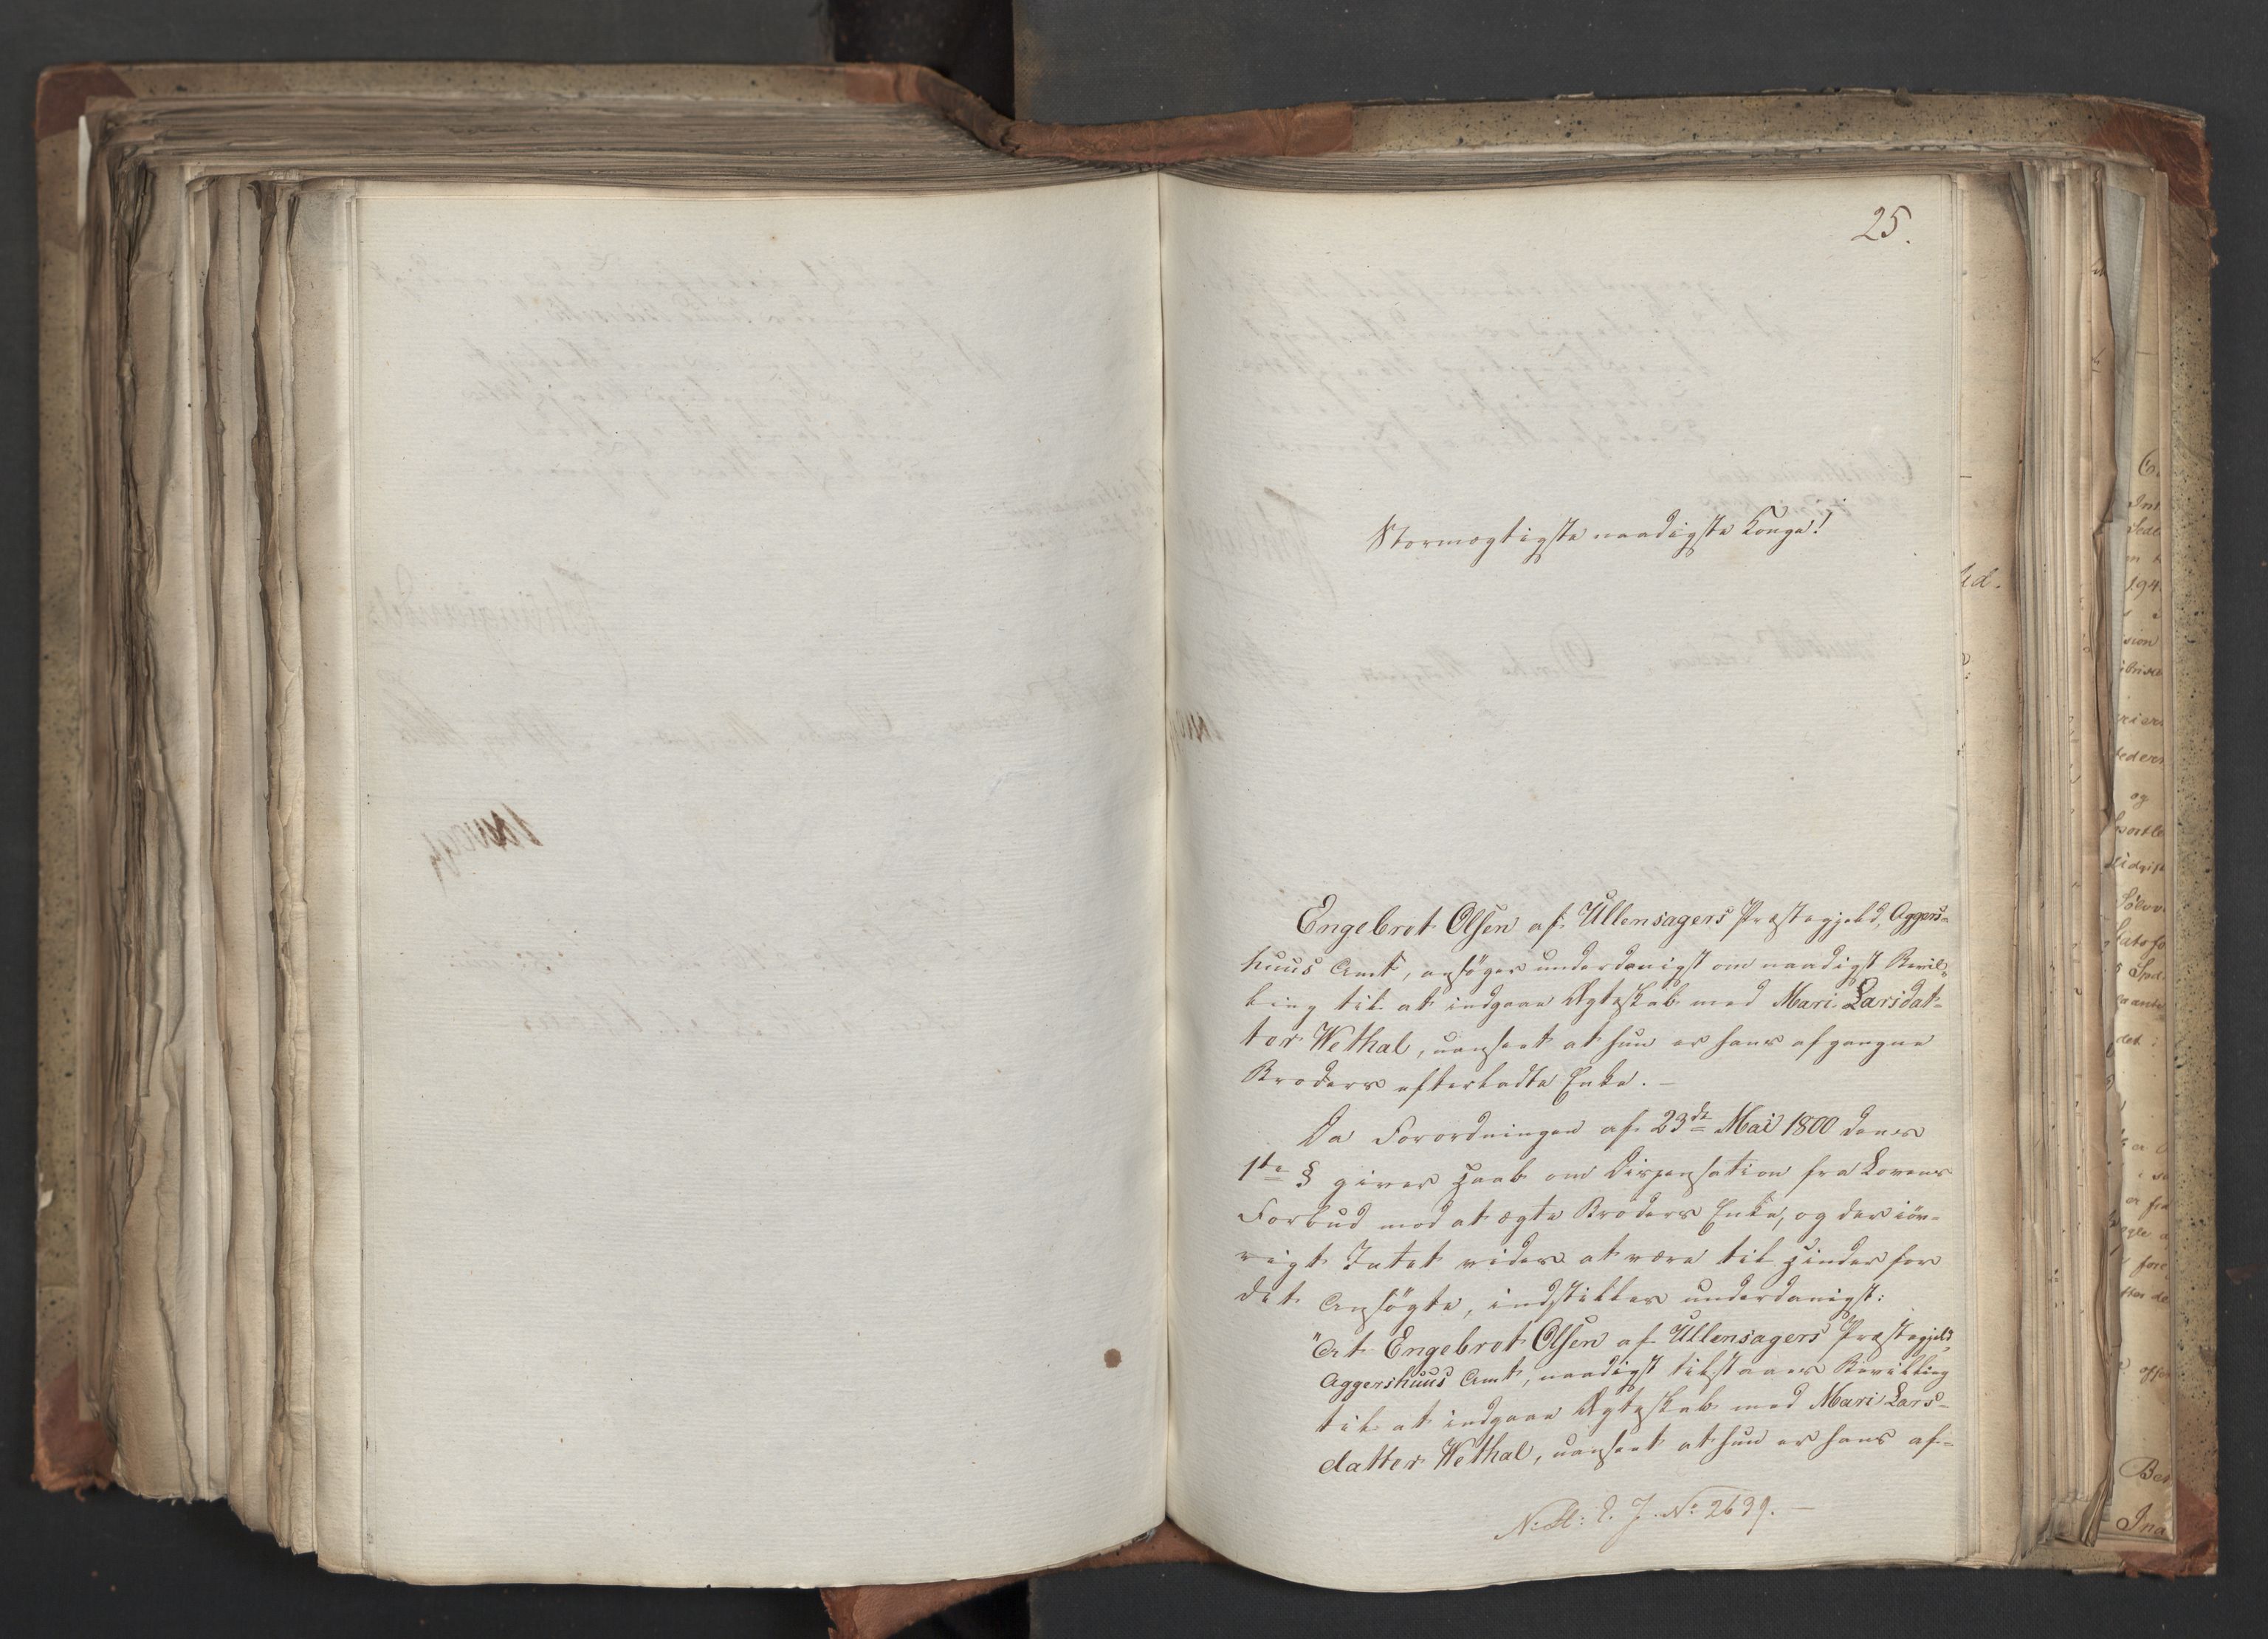 25.
Stormægtigste naadigste Konge!
Engebret Olsen af Ullensagers Præstegjeld, Aggers=
huus Amt, ansöger underdanigst om naadigst Bevil=
ling til at indgaae Ægteskab med Mari Larsdat=
ter Wethal, uanseet at hun er hans afgangne
Broders efterladte Enke. —
Da Forordningen af 23de Mai 1800 dens
1te § giver Haab om Dispensation fra Lovens
Forbud mod at ægte Broders Enke, og der iöv=
rigt Intet vides at være til Hinder for
det Ansögte, indstilles underdanigst:
"At Engebret Olsen af Ullensagers Præstegjeld,
Aggershuus Amt, naadigst tilstaaes Bevilling
til at indgaae Ægteskab med Mari Lars=
datter Wethal, uanseet at hun er hans af=
J. No 2639. —